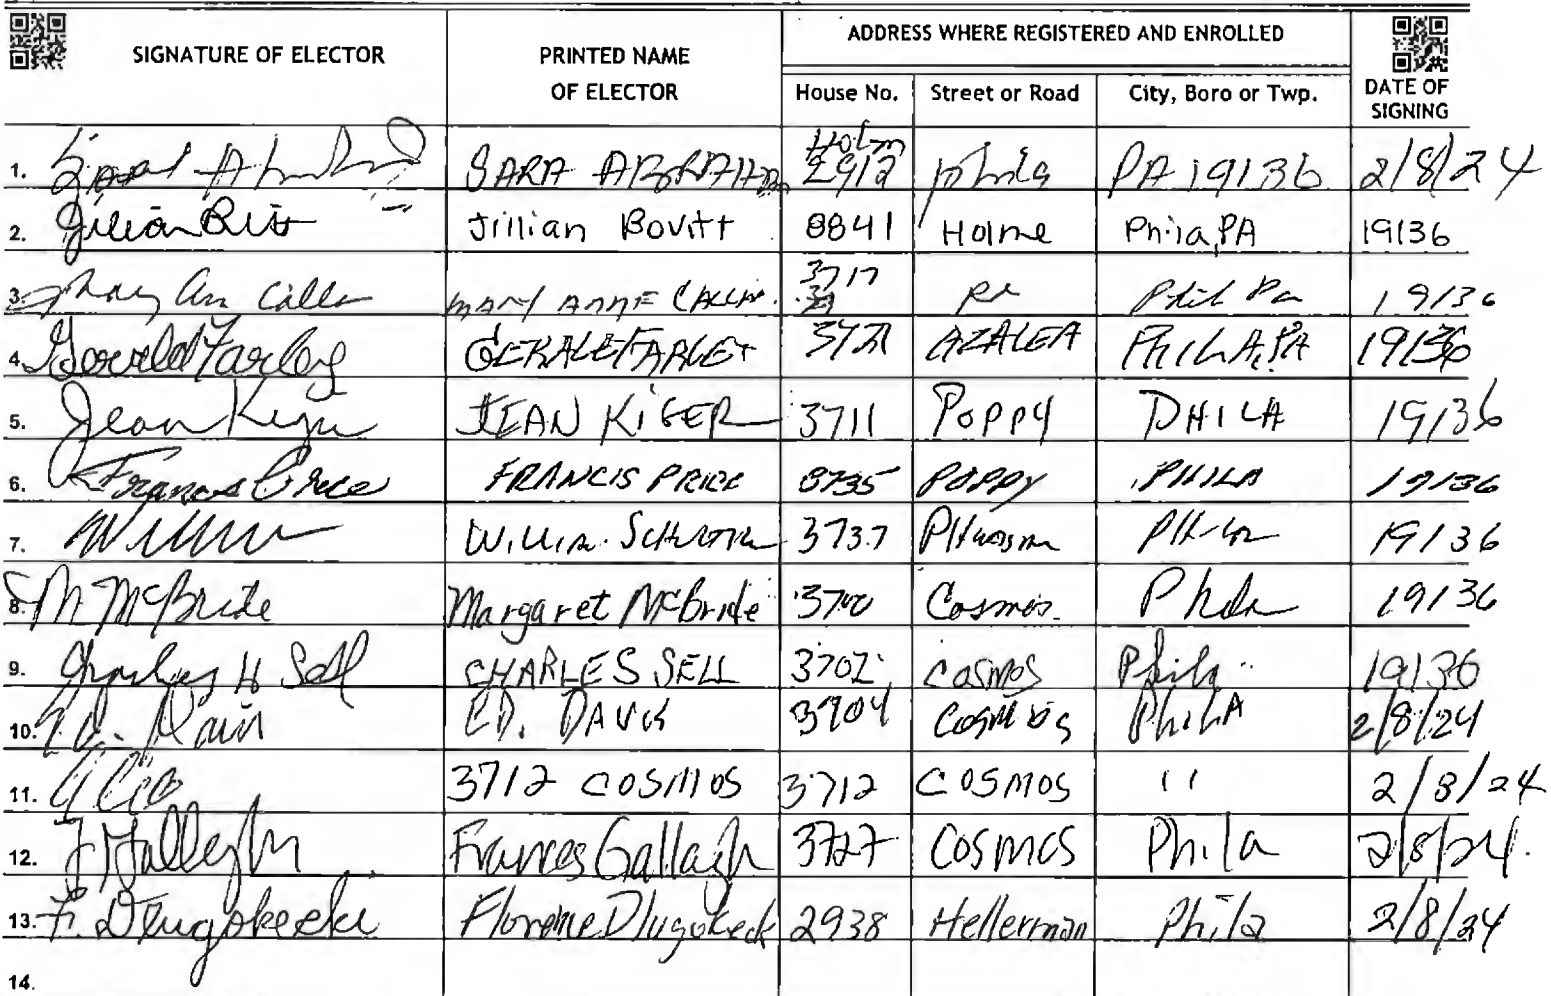 SIGNATURE OF ELECTOR PRINTED NAME OF ELECTOR ADDRESS WHERE REGISTERED AND ENROLLED
House No. Street or Road City, Boro or Twp. DATE OF SIGNING
1. SARA Holm 2912 phila PA 19136 2/8/24
2. Jillian Bovitt 8841 Holme Phila, PA 19136
3. Mary Ann MARY ANNE 3717 Phil Pa 19136
4. Gerald Farley 3721 AZALEA PHILA, PA 19136
5. Jean Kiger JEAN KIGER 3711 POPPY PHILA 19136
6. Francis Price FRANCIS PRICE 3735 POPPY PHILA 19136
7. 3737 19136
8. M McBride Margaret McBride 3700 Cosmos Phila 19136
9. Charles H Sell CHARLES SELL 3702 COSMOS Phila 19136
10. ED. DAVIS 3704 COSMOS PhilA 2/8/24
11. 3712 COSMOS 3712 COSMOS " 2/8/24
12. F Gallagh Frances Gallagh 3727 COSMOS Phila 2/8/24
13. F. Dlugokecki Florence Dlugokeck 2938 Hellerman Phila 2/8/24
14.